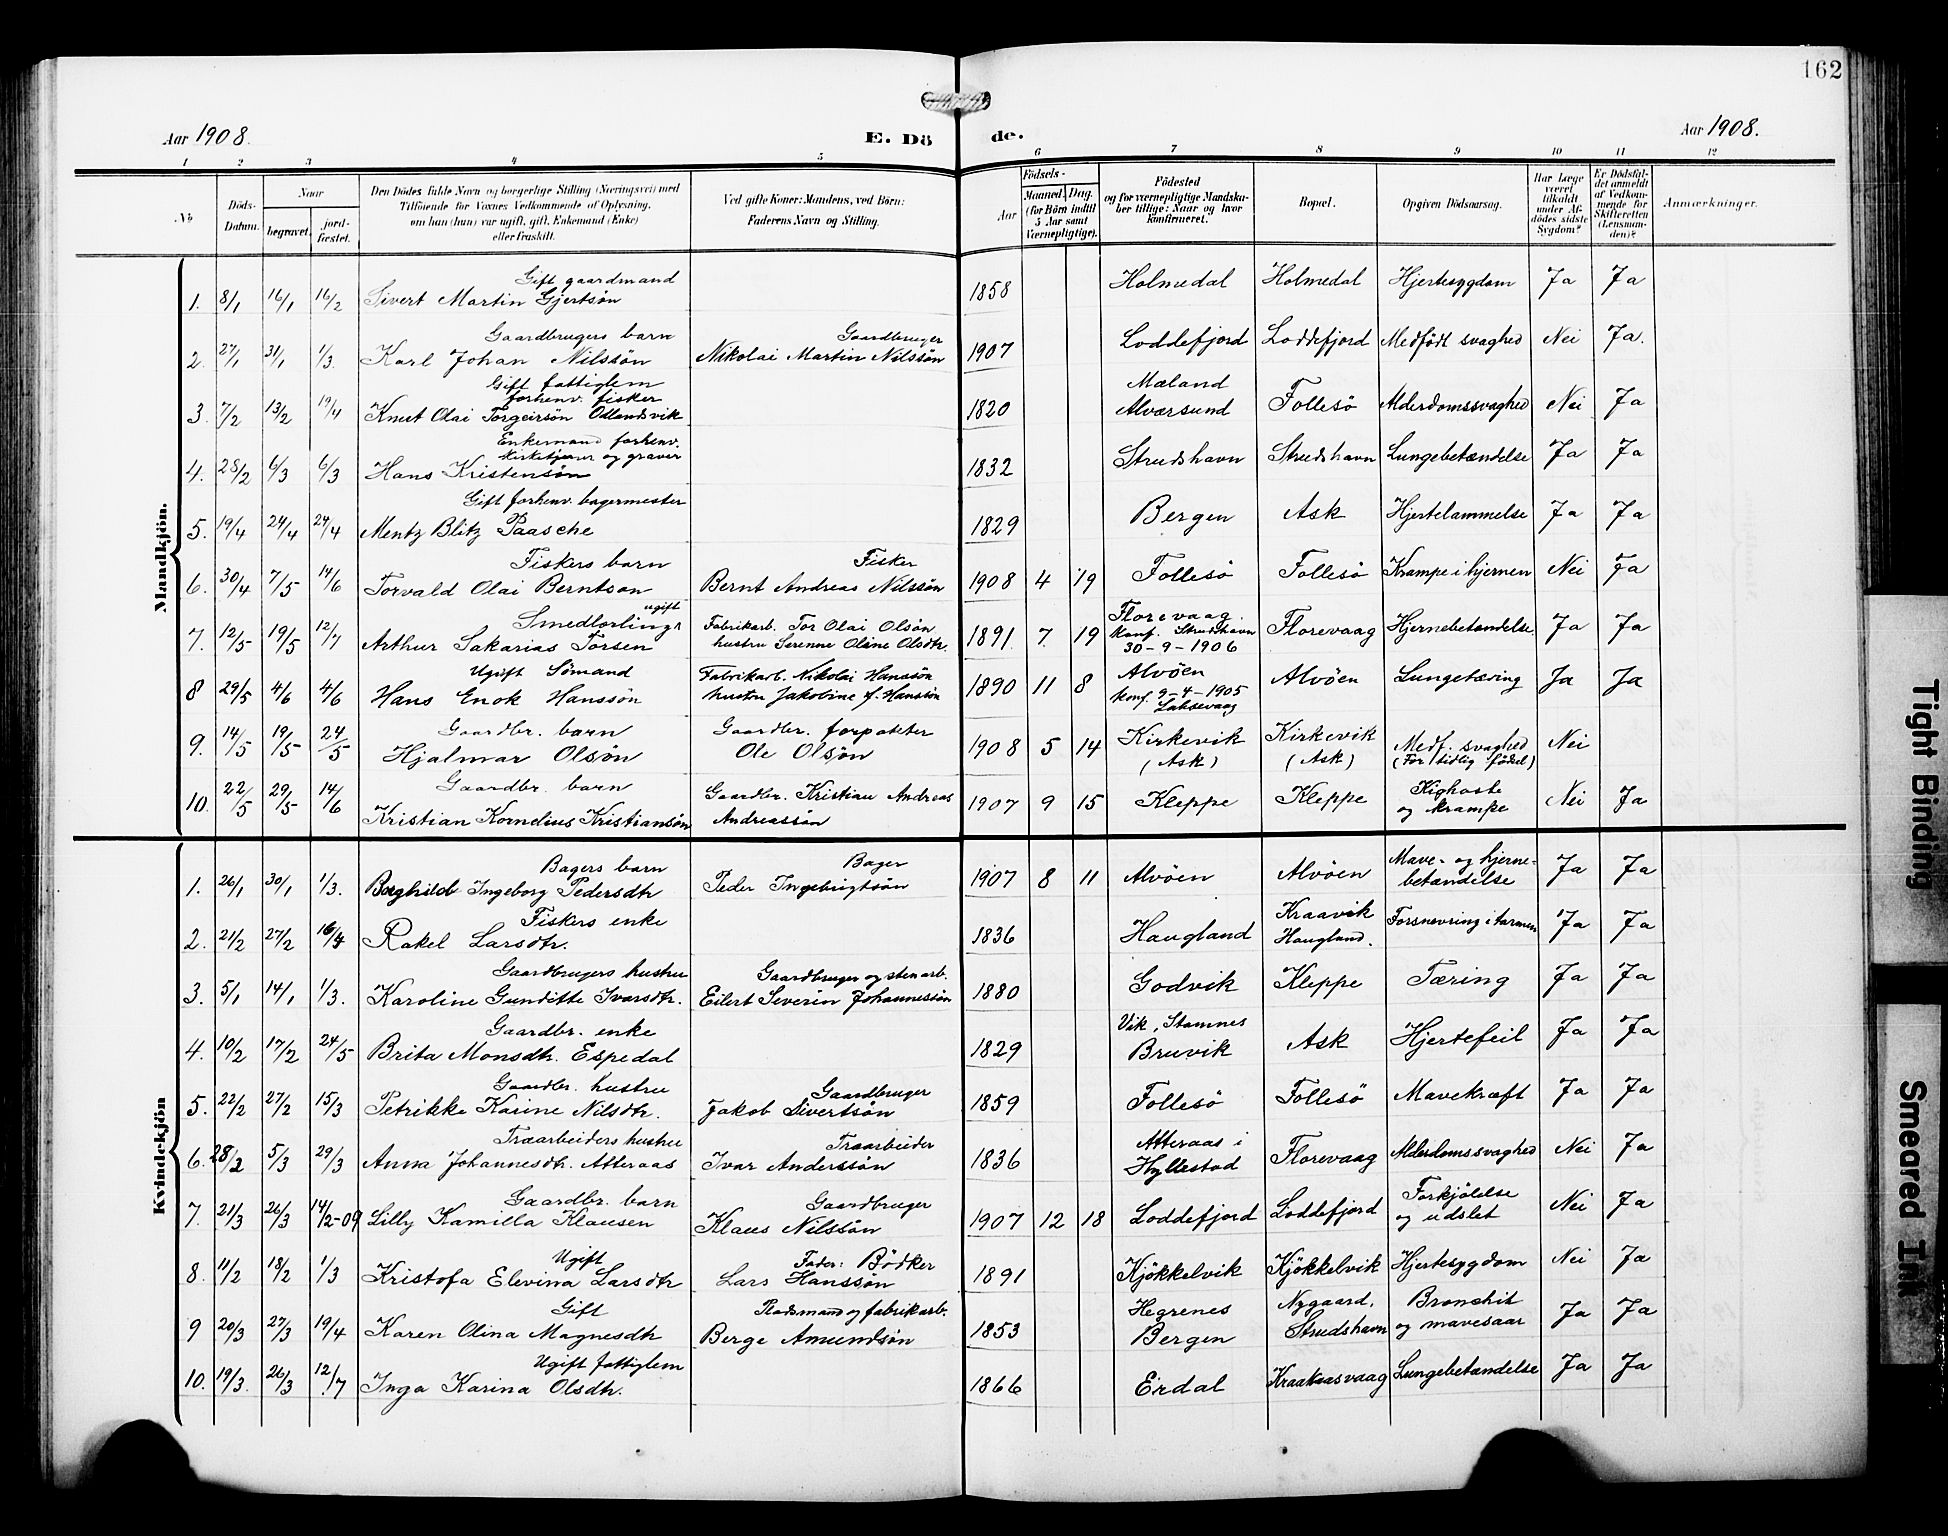 162
Aar 1908.
E. Dö
de.
Aar 1908.
1 2 3 4 5 6 7 8 9 10 11 12
No
Döds-Datum.
Naar
begravet.
jord-fæstet.
Den Dödes fulde Navn og borgerlige Stilling (Næringsvei) med
Tilföiende for Voxnes Vedkommende af Oplysning,
om han (hun) var ugift, gift, Enkemand (Enke)
eller fraskilt.
Ved gifte Koner: Mandens, ved Börn:
Faderens Navn og Stilling.
Födsels-
Aar
Maaned. Dag.
(for Börn indtil
5 Aar samt
Værnepligtige).
Födested
og for værnepligtige Mandska-
ber tillige: Naar og hvor
konfirmeret.
Bopæl.
Opgiven Dödsaarsag.
Har Læge
været
tilkaldt
under Af-
dödes sidste
Sygdom?
Er Dödsfal-
det anmeldt
af Vedkom-
mende for
Skifteretten
(Lensman-
den)?
Anmærkninger.
Mandkjön.
Gift gaardmand
1. 8/1 16/1 16/2 Sivert Martin Gjertsön 1858 Holmedal Holmedal Hjertesygdom Ja Ja
Gaardbrugers barn Gaardbruger
2. 27/1 31/1 1/3. Karl Johan Nilssön Nikolai Martin Nilssön 1907 Loddefjord Loddefjord Medfödt svaghed Nei Ja.
Gift fattiglem
forhenv. fisker Mæland
3. 7/2 13/2 19/4 Knut Olai Torgeirsön Odlandsvik 1820 Alværsund Follesö Alderdomssvaghed Nei Ja
Enkemand forhenv.
kirketjener og graver
4. 28/2 6/3 6/3 Hans Kristensön 1832 Strudshavn Strudshavn Lungebetændelse Ja Ja
Gift forhenv. bagermester
5. 19/4 24/4 24/4 Mentz Blitz Paasche 1829 Bergen Ask Hjertelammelse Ja Ja
Fiskers barn Fisker
6. 30/4 7/5 14/6 Torvald Olai Berntson Bernt Andreas Nilssön 1908 4 19 Follesö Follesö Krampe i hjernen Nei Ja
ugift
Smedlærling Fabrikarb. Tor Olai Olsön Florevaag.
7. 12/5 19/5 12/7 Arthur Sakarias Torsen hustru Serenne Oline Olsdtr. 1891. 7. 19 konf. Strudshavn Florevaag Hjernebetændelse Ja Ja
30-9-1906
Ugift Sömand Fabrikarb. Nikolai Hanssön Alvöen
8 29/5 4/6 4/6 Hans Enok Hanssön hustru Jakobine f. Hanssön 1890 11 8 konf. 9-4-1905 Alvöen Lungetæring Ja Ja
Laksevaag
Gaardbr. barn Gaardbr. forpakter
9. 14/5 19/5 24/5 Hjalmar Olsön Ole Olsön 1908 5 14 Kirkevik (Ask) Kirkevik (Ask) Medf. svaghed (For tidlig födsel) Nei
Gaardbr. barn Gaardbr. Kristian Andreas
10. 22/5 29/5 14/6 Kristian Kornelius Kristiansön Andreassön 1907 9 15 Kleppe Kleppe Kighoste og krampe Nei Ja
Kvindekjön
Bagers barn Bager
1. 26/1 30/1 1/3. Borghild Ingeborg Pedersdtr Peder Ingebrigtsön 1907 8 11 Alvöen Alvöen Mave- og hjerne-betændelse Ja Ja
Fiskers enke
2. 21/2 27/2 16/4 Rakel Larsdtr. 1836 Haugland Kraavik Haugland. Forsnevring i tarmen Ja Ja
Gaardbrugers hustru Gaardbruger og stenarb.
3. 5/1 14/1 1/3. Karoline Gunditte Ivarsdtr. Eilert Severin Johannessön 1880 Godvik Kleppe Tæring Ja Ja
Gaardbr. enke Vik, Stamnes
4. 10/2 17/2 24/5 Brita Monsdtr. Espedal 1829 Bruvik Ask Hjertefeil Ja Ja
Gaardbr. hustru Gaardbruger
5. 22/2 27/2 15/3 Petrikke Karine Nilsdtr. Jakob Sivertsön 1859 Follesö Follesö Mavekræft Ja Ja
Træarbeiders hustru Træarbeider Atteraas i
6. 28/2 5/3 29/3 Anna Johannesdtr. Atteraas Ivar Anderssön 1836 Hyllestad Florevaag Alderdomssvaghed Nei Ja
Gaardbr. barn Gaardbruger
7. 21/3 26/3 14/2-09 Lilly Kamilla Klausen Klaus Nilssön 1907 12 18 Loddefjord Loddefjord Forkjölelse og udslet Nei Ja
Ugift Fader: Bödker
8. 11/2 18/2 1/3 Kristofa Elevina Larsdtr Lars Hanssön 1891 Kjökkelvik Kjökkelvik Hjertesygdom Nei Ja
Gift Pladsmand og fabrikarb. Hegrenes
9 20/3 27/3 19/4 Karen Olina Magnesdtr Berge Amundsön 1853 Bergen Nygaard, Strudshavn Bronchit og mavesaar Ja Ja
Ugift fattiglem
10. 19/3. 26/3 12/7 Inga Karina Olsdtr. 1866 Erdal Kraakaasvaag Lungebetændelse Ja Ja
Tight Binding
Smeared Ink